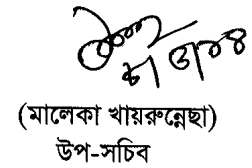 (মালেকা খায়রুন্নেছা)
উপ-সচিব